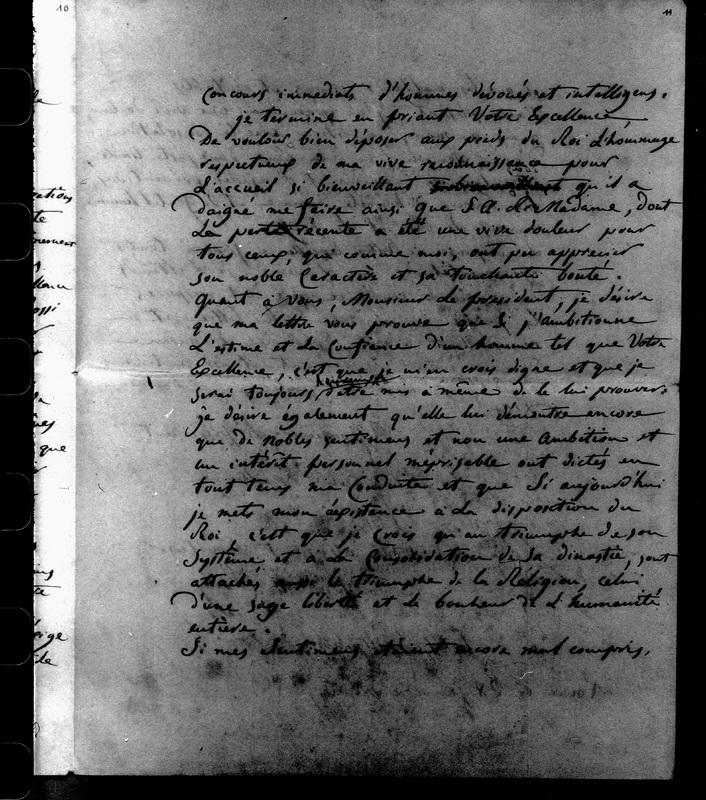 10
11
concours immediats d'hommes dévoués et intelligens.
je termine en priant Votre Excellence
De vouloir bien déposer aux pieds du Roi L'hommage
respectueux de ma vive reconnaissance pour
L'accueil si bienveillant qu'il a
daigné me faire ainsi que S. A. R. Madame, dont
La perte récente a été une vive douleur pour
tous ceux, qui comme moi, ont pu apprecier
son noble Caractère et sa touchante bonté.
Quant à vous, Monsieur Le president, je désire
que ma lettre vous prouve que Si j'ambitionne
L'estime et La Confiance d'un homme tel que Votre
Excellence, c'est que je m'en crois digne et que je
heureux
serai toujours d'être mis à même de le lui prouver.
je désire également qu'elle lui démontre encore
que de nobles sentimens et non une ambition et
un intérêt personnel méprisable ont dictés en
tout tems ma Conduite et que Si aujourd'hui
je mets mon existence a La disposition du
Roi, c'est que je crois qu'au triumphe de son
Système et a La Consolidation de Sa dinastie, sont
attachés aussi le triumphe de la Religion, celui
d'une sage liberté et le bonheur de L'humanité
entière.
Si mes Sentimens étaient encore mal compris,